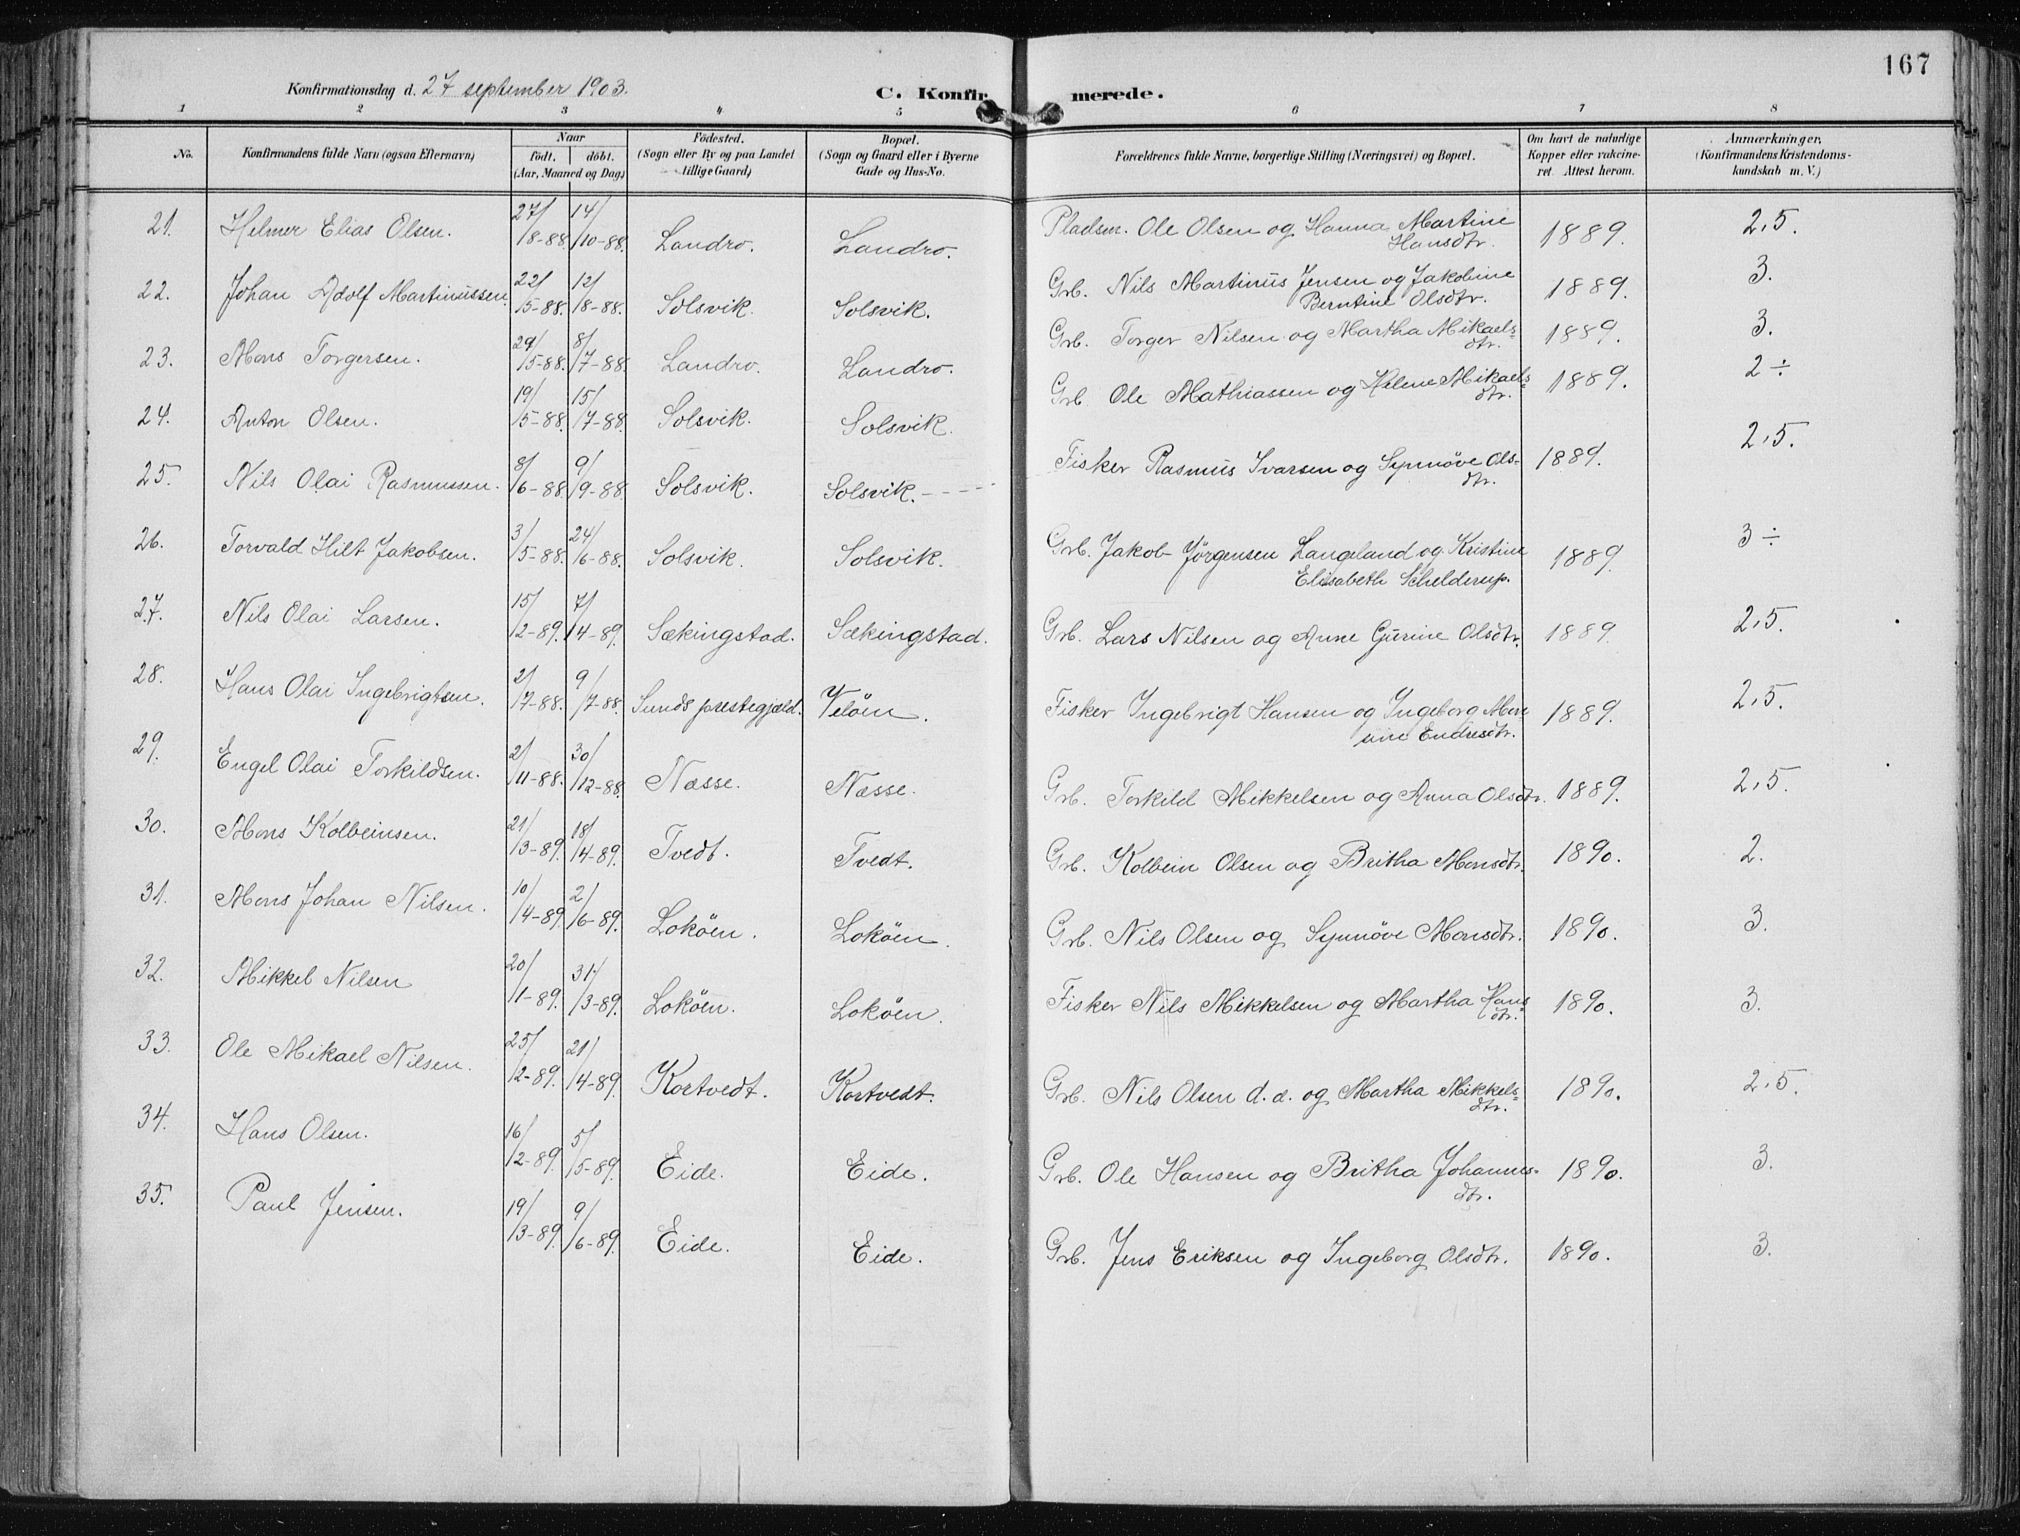 167
Konfirmationsdag d. 27 september 1903.
C. Konfirmerede.
1 2 3 4 5 6 7 8
No.
Konfirmandens fulde Navn (ogsaa Efternavn)
Naar
födt. döbt.
(Aar, Maaned og Dag)
Födested.
(Sogn eller By og paa Landet
tillige Gaard)
Bopæl.
(Sogn og Gaard eller i Byerne
Gade og Hus-No.
Forældrenes fulde Navne, borgerlige Stilling (Næringsvei) og Bopæl.
Om havt de naturlige
Kopper eller vakcine-
ret. Attest herom.
Anmærkninger.
(Konfirmandens Kristendoms-
kundskab m. V.)
21. Helmer Elias Olsen. 27/8-88. 14/10-88. Landro. Landro. Pladsm. Ole Olsen og Hanna Martine 1889. 2,5.
Hansdtr.
22. Johan Adolf Martinussen. 22/5-88. 12/8-88. Solsvik. Solsvik. Grb. Nils Martinus Jensen og Jakobine 1889. 3.
Berntine Olsdtr.
23. Mons Torgersen. 29/5-88. 8/7-88. Landro. Landro. Grb. Torger Nilsen og Martha Mikaels= 1889. 3.
dtr.
24. Anton Olsen. 19/5-88. 15/7-88. Solsvik. Solsvik. Grb. Ole Mathiassen og Helene Mikaels= 1889. 2÷
dtr.
25. Nils Olai Rasmussen. 8/6-88. 9/9-88. Solsvik. Solsvik. Fisker Rasmus Ivarsen og Synnöve Ols- 1889. 2,5.
dtr.
26. Torvald Hilt Jakobsen. 3/5-88. 24/6-88. Solsvik. Solsvik. Grb. Jakob Jørgensen Langeland og Kristine 1889. 3÷
Elisabeth Schelderup.
27. Nils Olai Larsen. 15/2-89. 7/4-89. Sækingstad. Sækingstad. Grb. Lars Nilsen og Anne Gurine Olsdtr. 1889. 2,5.
28. Hans Olai Ingebrigtsen. 2/7-88. 9/7-88. Sunds prestegjæld. Velöen. Fisker Ingebrigt Hansen og Ingeborg Mon 1889. 2,5.
sine Endresdtr.
29. Engel Olai Torkildsen. 2/11-88. 30/12-88. Næsse. Næsse. Grb. Torkild Mikkelsen og Anna Olsdtr. 1889. 2,5.
30. Mons Kolbeinsen. 21/3-89. 18/4-89. Tvedt. Tvedt. Grb. Kolbein Olsen og Britha Monsdtr. 1890. 2.
31. Mons Johan Nilsen. 10/4-89. 2/6-89. Loköen. Loköen. Grb. Nils Olsen og Synnöve Monsdtr. 1890. 3.
32. Mikkel Nilsen 20/1-89. 31/3-89. Loköen. Loköen. Fisker Nils Mikkelsen og Martha Hans 1890. 3.
dtr.
33. Ole Mikael Nilsen. 25/2-89. 21/4-89. Kortvedt. Kortvedt. Grb. Nils Olsen d. d. og Martha Mikkels= 1890. 2,5.
dtr.
34. Hans Olsen. 16/2-89. 5/5-89. Eide. Eide. Grb. Ole Hansen og Britha Johannes- 1890. 3.
dtr.
35. Paul Jensen. 19/3-89. 9/6-89. Eide. Eide. Grb. Jens Eriksen og Ingeborg Olsdtr. 1890. 3.